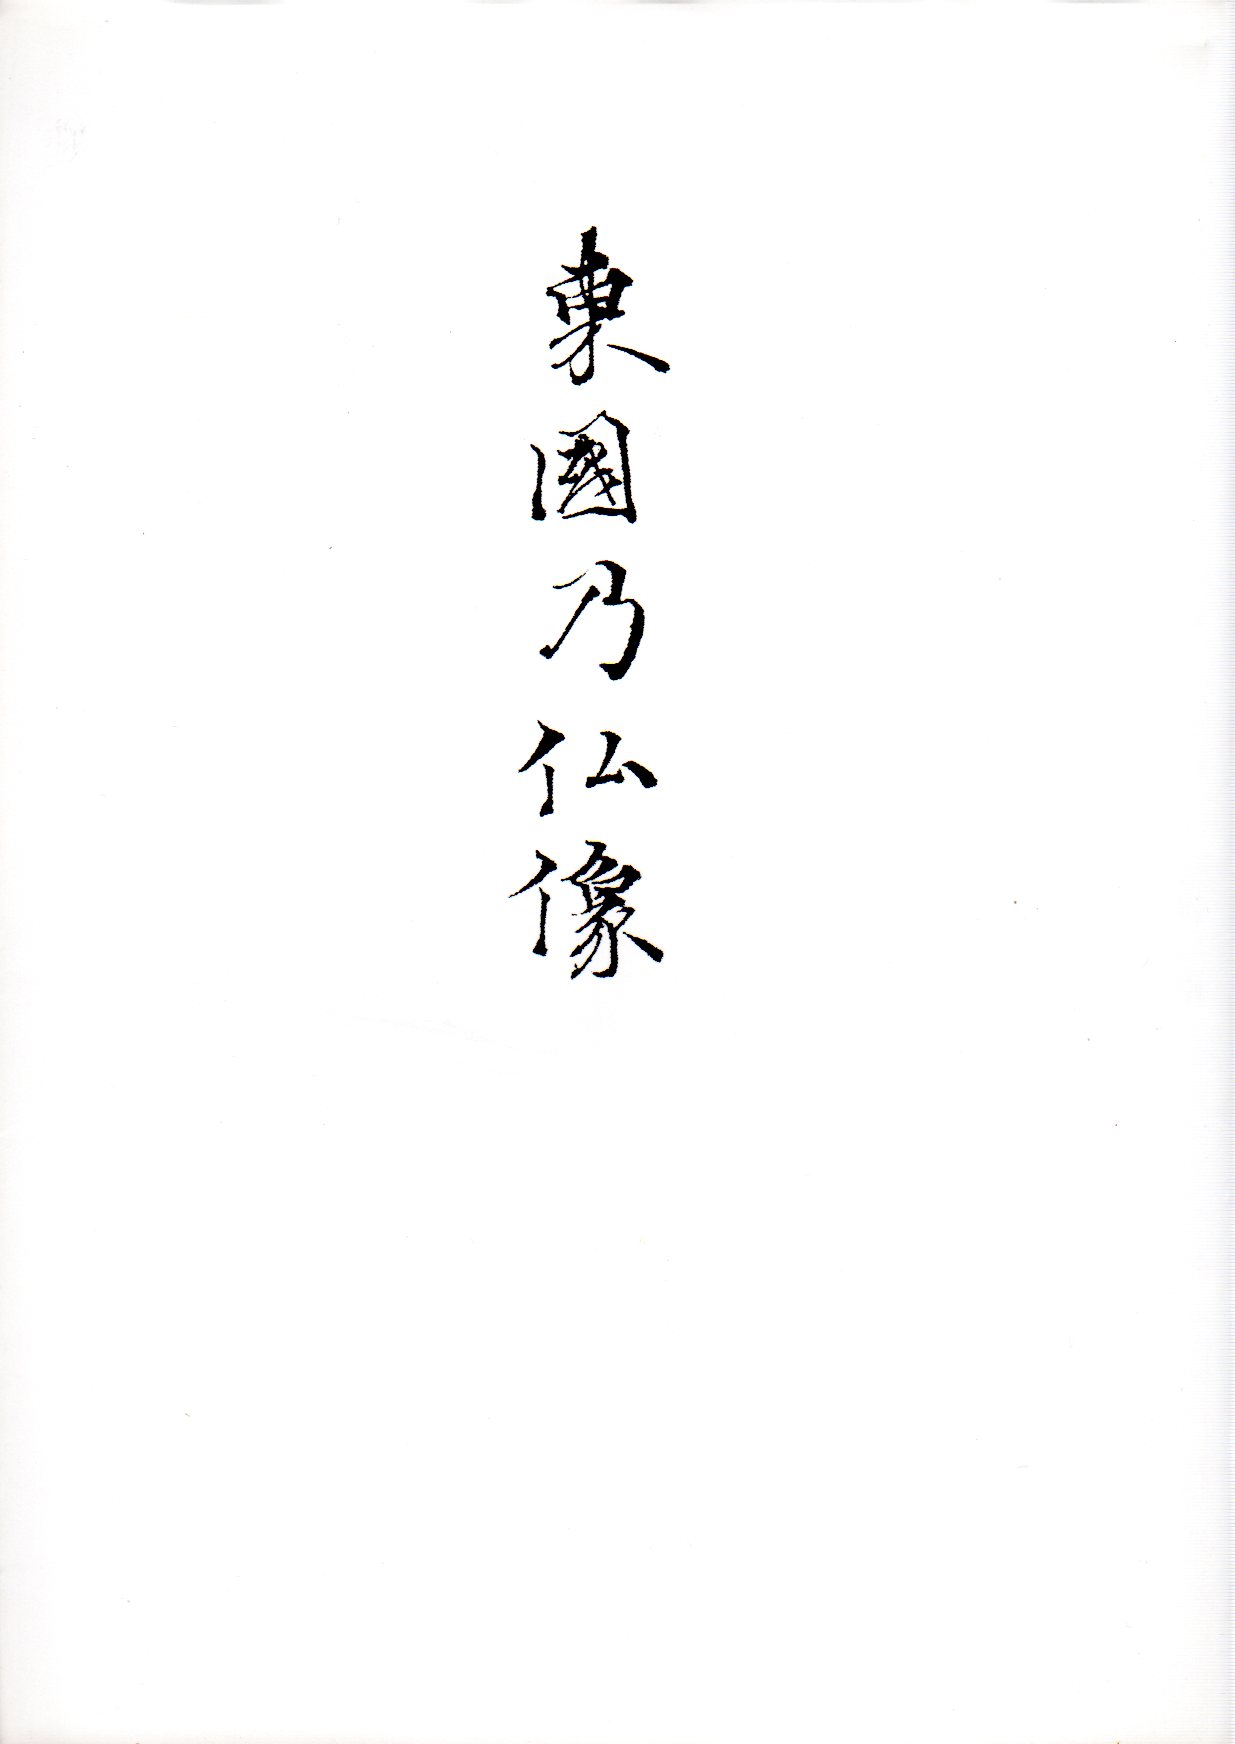 東國乃仏像